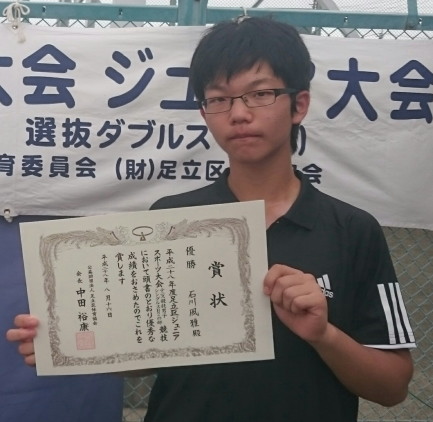 大会 ジュニア大会
選抜ダブルス
育委員会 (財)足立区
賞状
優勝
石川颯雅殿
平成二十八年度足立区ジュニア
スポーツ大会
競技
において頭書のとおり優秀な
成績をおさめたのでこれを
賞します
平成二十八年八月十六日
会長
中田裕康
adidas